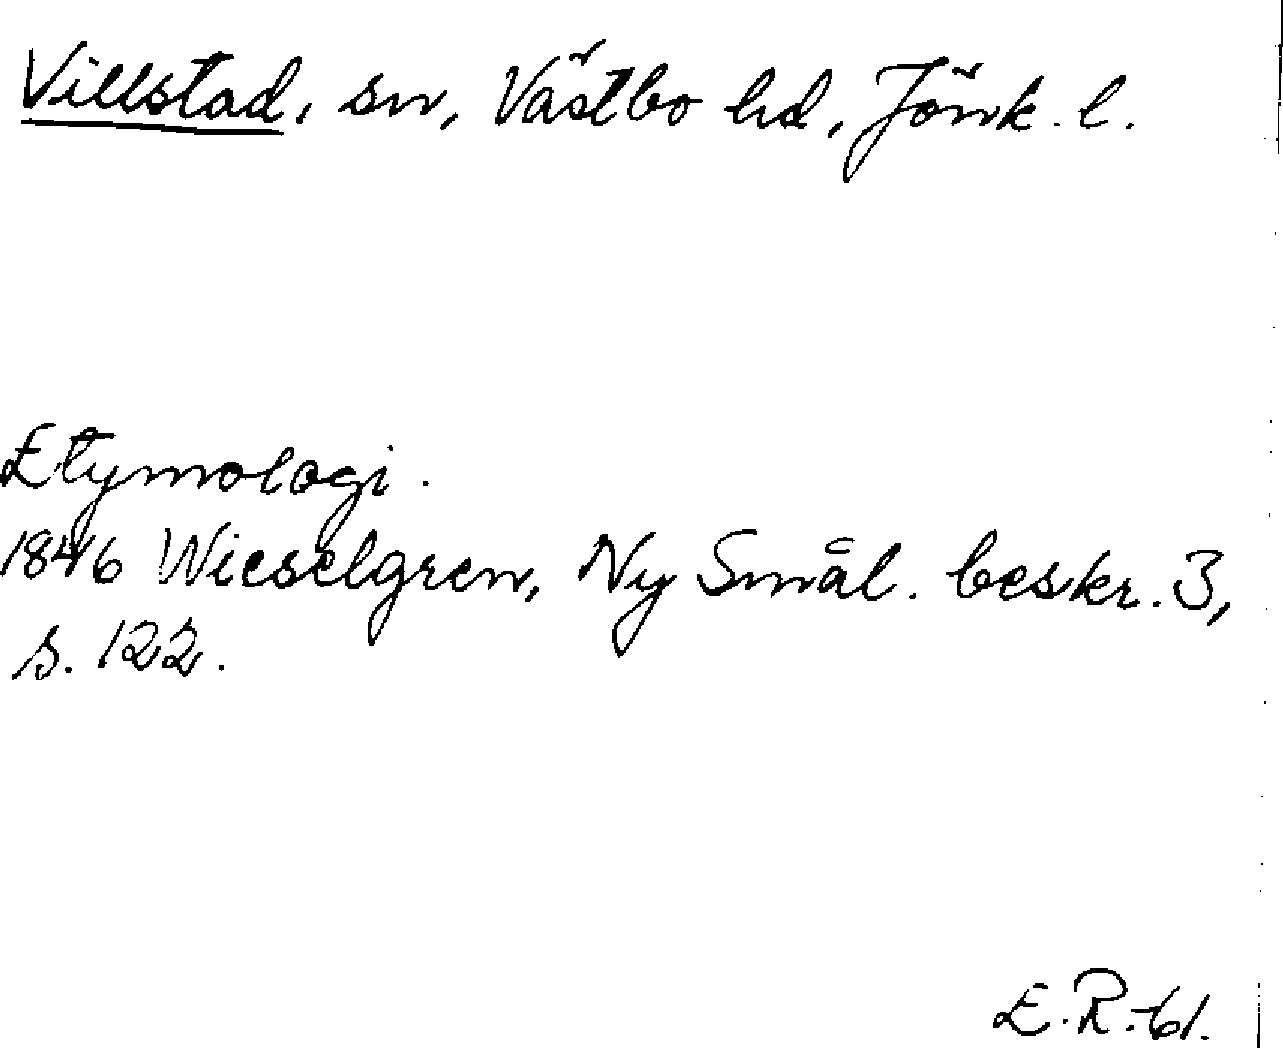 Villstad, sn, Västbo hd, Jönk. l.
Etymologi.
1846 Wieselgren, Ny Smål. beskr. 3,
s. 122.
E.R.-61.